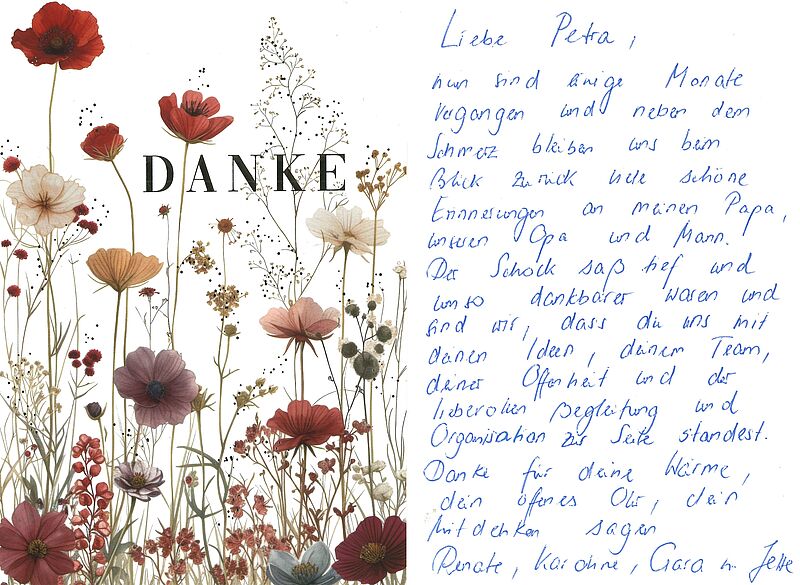 DANKE
Liebe Petra,
nun sind einige Monate
vergangen und neben dem
Schmerz bleiben uns beim
Blick zurück viele schöne
Erinnerungen an meinen Papa,
unseren Opa und Mann.
Der Schock saß tief und
umso dankbarer waren und
sind wir, dass du uns mit
deinen Ideen, deinem Team,
deiner Offenheit und der
liebevollen Begleitung und
Organisation zur Seite standest.
Danke für deine Wärme,
dein offenes Ohr, dein
Mitdenken sagen
Renate, Karoline, Clara u. Jette